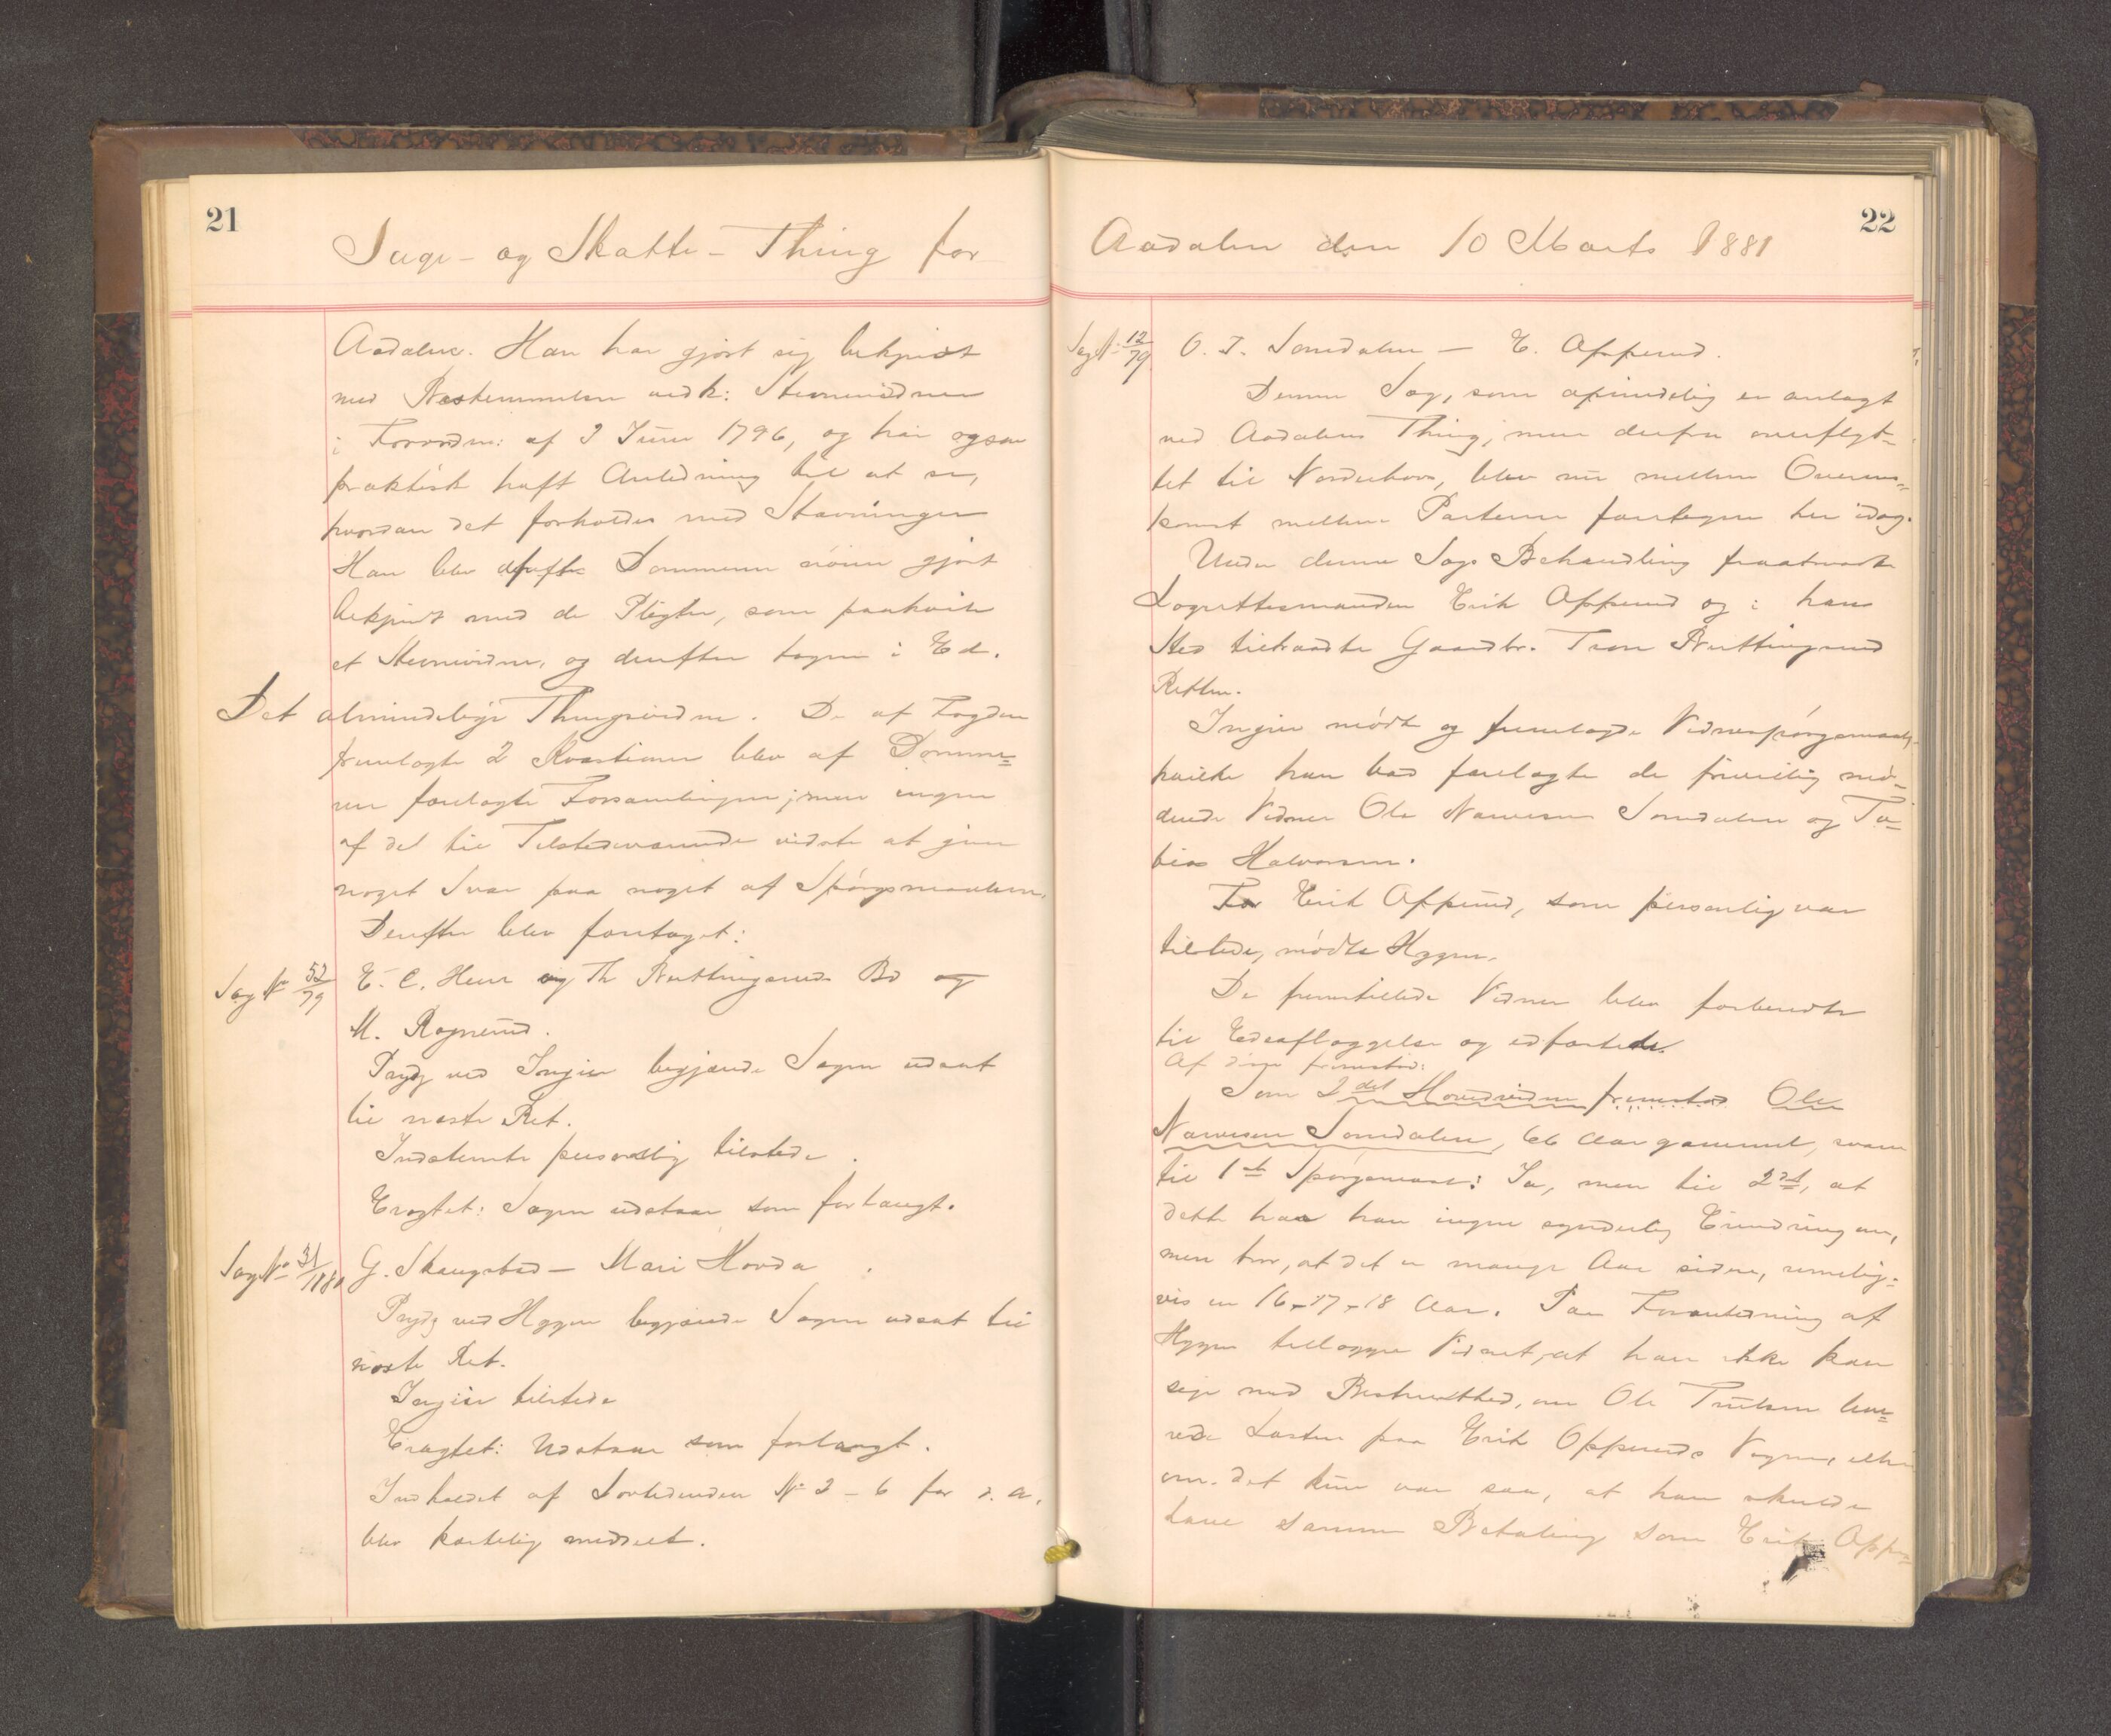 21
Sage- og Skatte-Thing for
Aadalen. Han har gjort sig bekjendt
med Bestemmelsen vedk: Stevnevidner
i Forordn: af 3 Juni 1796, og har ogsaa
praktisk haft Anledning til at se,
hvordan det forholdes med Stævninger
Han blev derefter Dommeren nöiere gjort
bekjendt med de Pligter, som paahvile
et Stevnevidne, og derefter tagen i Ed.
Det almindelige Thingsvidne. De af Fogden
fremlagte 2 Kvæstioner blev af Domme=
ren forelagte Forsamlingen; men ingen
af det til Tilstedeværende vidste at give
noget Svar paa noget af Spörgsmaalene.
Derefter blev foretaget:
Sag No 52/79
E. C. Heur og Th Buttingsruds Bo og
M. Rognerud.
Prydz ved Ingier begjærede Sagen udsat
til næste Ret.
Indstevnte personlig tilstede.
Eragtet: Sagen udstaar som forlangt.
Sag No 31/1880
G. Skaugstad — Mari Hovda.
Prydz ved Hygen begjærede Sagen udsat til
næste Ret.
Ingier tilstede
Eragtet: Udstaar som forlangt.
Indholdet af Lovtidenden No 3 - 6 for d. A.
blev kortelig meddelt.
22
Aadalen den 10 Marts 1881
Sag No 12/79
O. T. Somdalen — E. Opperud.
Denne Sag, som oprindelig er anlagt
ved Aadalens Thing, men derfra overflyt-
tet til Norderhov, blev nu mellem Overens=
komst mellem Parterne foretagen her idag.
Under denne Sags Behandling fraatraadte
Lagrettesmanden Erik Opperud og i hans
Sted tiltraadte Gaardbr. Tron Buttingsrud
Retten.
Ingier mödte og fremlagde Vidnespörgsmaal,
hvilke han bad forelagte de frivillig mö-
dende Vidner Ole Narvesen Somdalen og To-
bias Halvorsen.
For Erik Opperud, som personlig var
tilstede, mödte Hygen.
De fremstillede Vidner blev forberedte
til Edsaflæggelse og edfæstede.
Af disse fremstod:
Som 2det Hovedvidne fremstod Ole
Narvesen Somdalen, 66 Aar gammel, svarer
til 1ste Spörgsmaal: Ja, men til 2det, at
dette har han ingen synderlig Erindring om,
men tror, at det er mange Aar siden, rimelig-
vis en 16-17-18 Aar. Paa Foranledning af
Hygen tillægger Vidnet, at han ikke kan
sige med Bestemthed, om Ole Truelsen leve=
rede Lasten paa Erik Opperuds Vegne, eller
om det kun var saa, at han skulde
have samme Betaling som Erik Oppe=